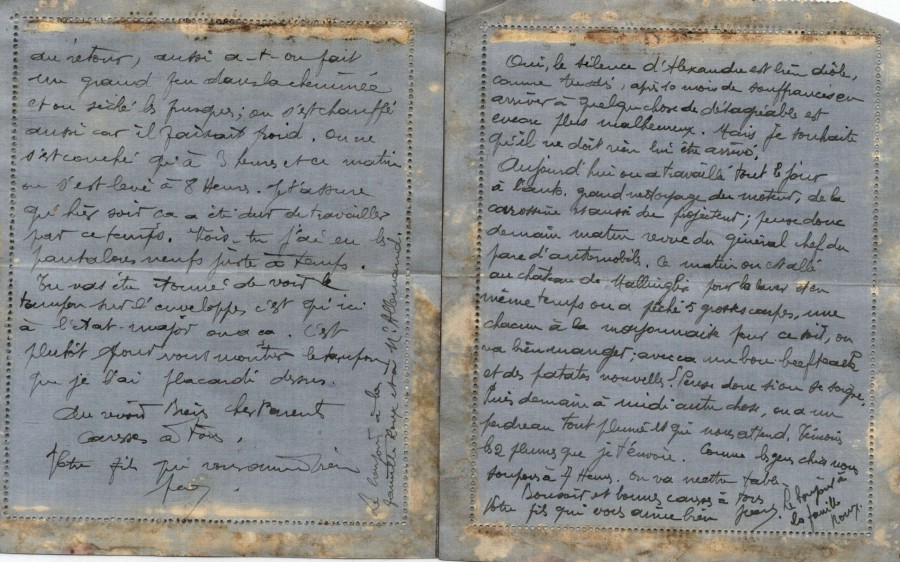 du retour, aussi a-t-on fait
un grand feu dans la cheminée
et on séché les frusques; on s'est chauffé
aussi car il faisait froid. On ne
s'est couché qu'à 3 heures et ce matin
on s'est levé à 8 Heures. Je t'assure
qu'hier soir ça a été dur de travailler
par ce temps. Vois-tu j'ai eu les
pantalons neufs juste à temps.
Tu vas être étonné de voir le
tampon sur l'enveloppe c'est qu'ici
à l'état-major on a ça. C'est
plutôt pour vous montrer le tampon
que je l'ai placardé dessus.
Au revoir Biens Chers Parents
Caresses à tous.
Votre fils qui vous aime bien
Jean.
Le bonjour à la
famille Roux et à Mr Allemand.
Oui, le silence d'Alexandre est bien drôle,
comme tu dis, après 10 mois de souffrances en
arriver à quelque chose de désagréable est
encore plus malheureux. Mais je souhaite
qu'il ne doit rien lui être arrivé.
Aujourd'hui on a travaillé tout le jour
à l'auto. grand nettoyage du moteur, de la
carosserie et aussi du projecteur; pense donc
demain matin revue du général chef du
parc d'automobils. Ce matin on est allé
au château de pour la laver et en
même temps on a pêché 5 grosses carpes, une
chacun à la mayonnaise pour ce soir, on
va bien manger; avec ça un bon beefsteack
et des patates nouvelles! Pense donc si on se soigne.
Puis demain à midi autre chose, on a un
perdreau tout plumé et qui nous attend. Témoin
les 2 plumes que je t'envoie. Comme les gens chez nous
soupons à 7 Heures. on va mettre table.
Bonsoir et bonnes caresses à tous
Votre fils qui vous aime bien Jean.
Le bonjour à
la famille
Roux.